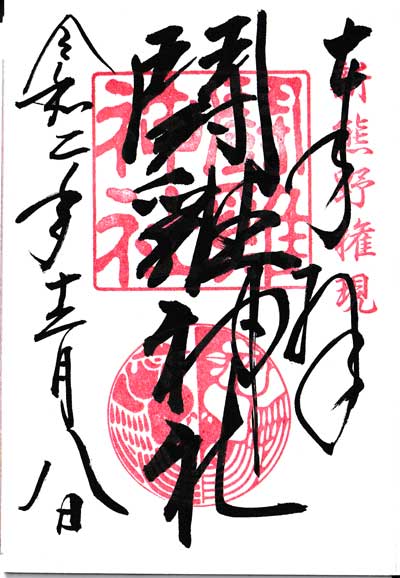 奉拝
新熊野權現
鬪雞神社
鬪雞神社
令和二年十二月八日